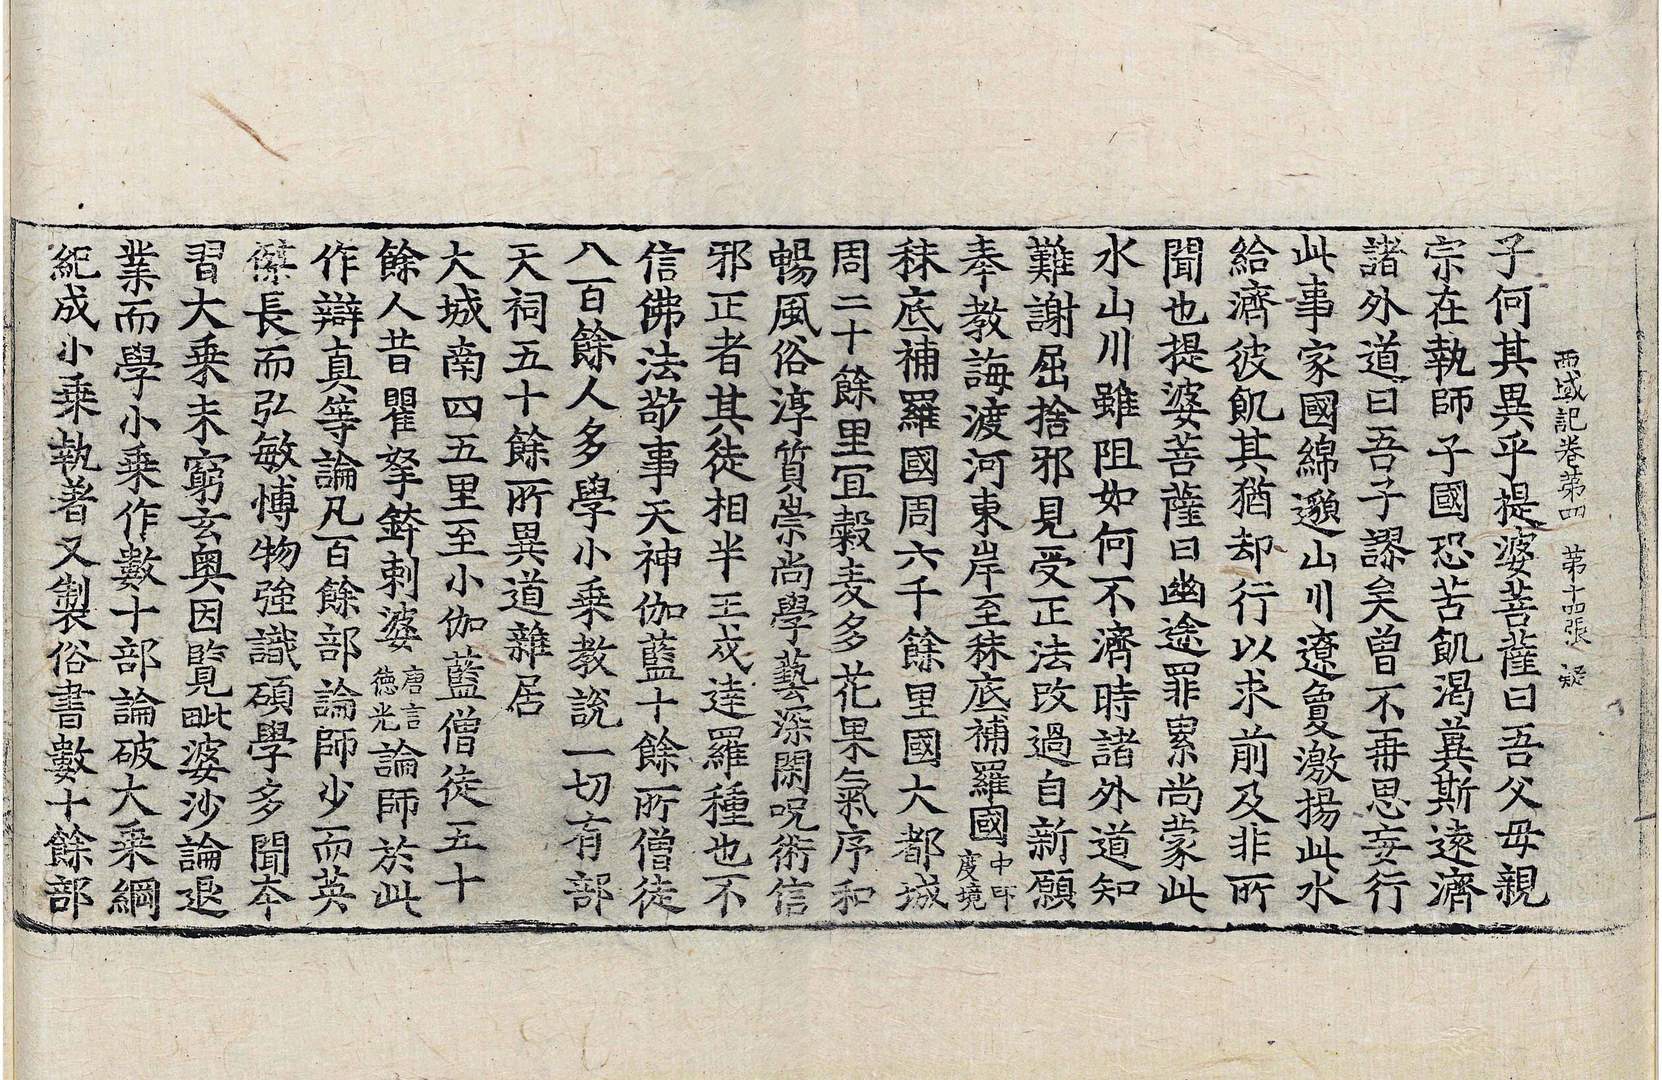 西域記卷第四　第十四張　疑
子何其異乎提婆菩薩曰吾父母親
宗在執師子國恐苦飢渴冀斯遠濟
諸外道曰吾子謬矣曾不再思妄行
此事家國綿邈山川遼敻激揚此水
給濟彼飢其猶却行以求前及非所
聞也提婆菩薩曰幽途罪累尚蒙此
水山川雖阻如何不濟時諸外道知
難謝屈捨邪見受正法改過自新願
奉教誨渡河東岸至秣底補羅國中印度境
秣底補羅國周六千餘里國大都城
周二十餘里宜穀麦多花果氣序和
暢風俗淳質崇尚學藝深閑呪術信
邪正者其徒相半王戍達羅種也不
信佛法敬事天神伽藍十餘所僧徒
八百餘人多學小乘教說一切有部
天祠五十餘所異道雜居
大城南四五里至小伽藍僧徒五十
餘人昔瞿拏鉢剌婆唐言德光論師於此
作辯真等論凡百餘部論師少而英
傑長而弘敏博物強識碩學多聞本
習大乘未窮玄奥因覽毗婆沙論退
業而學小乘作數十部論破大乘綱
紀成小乘執著又製俗書數十餘部